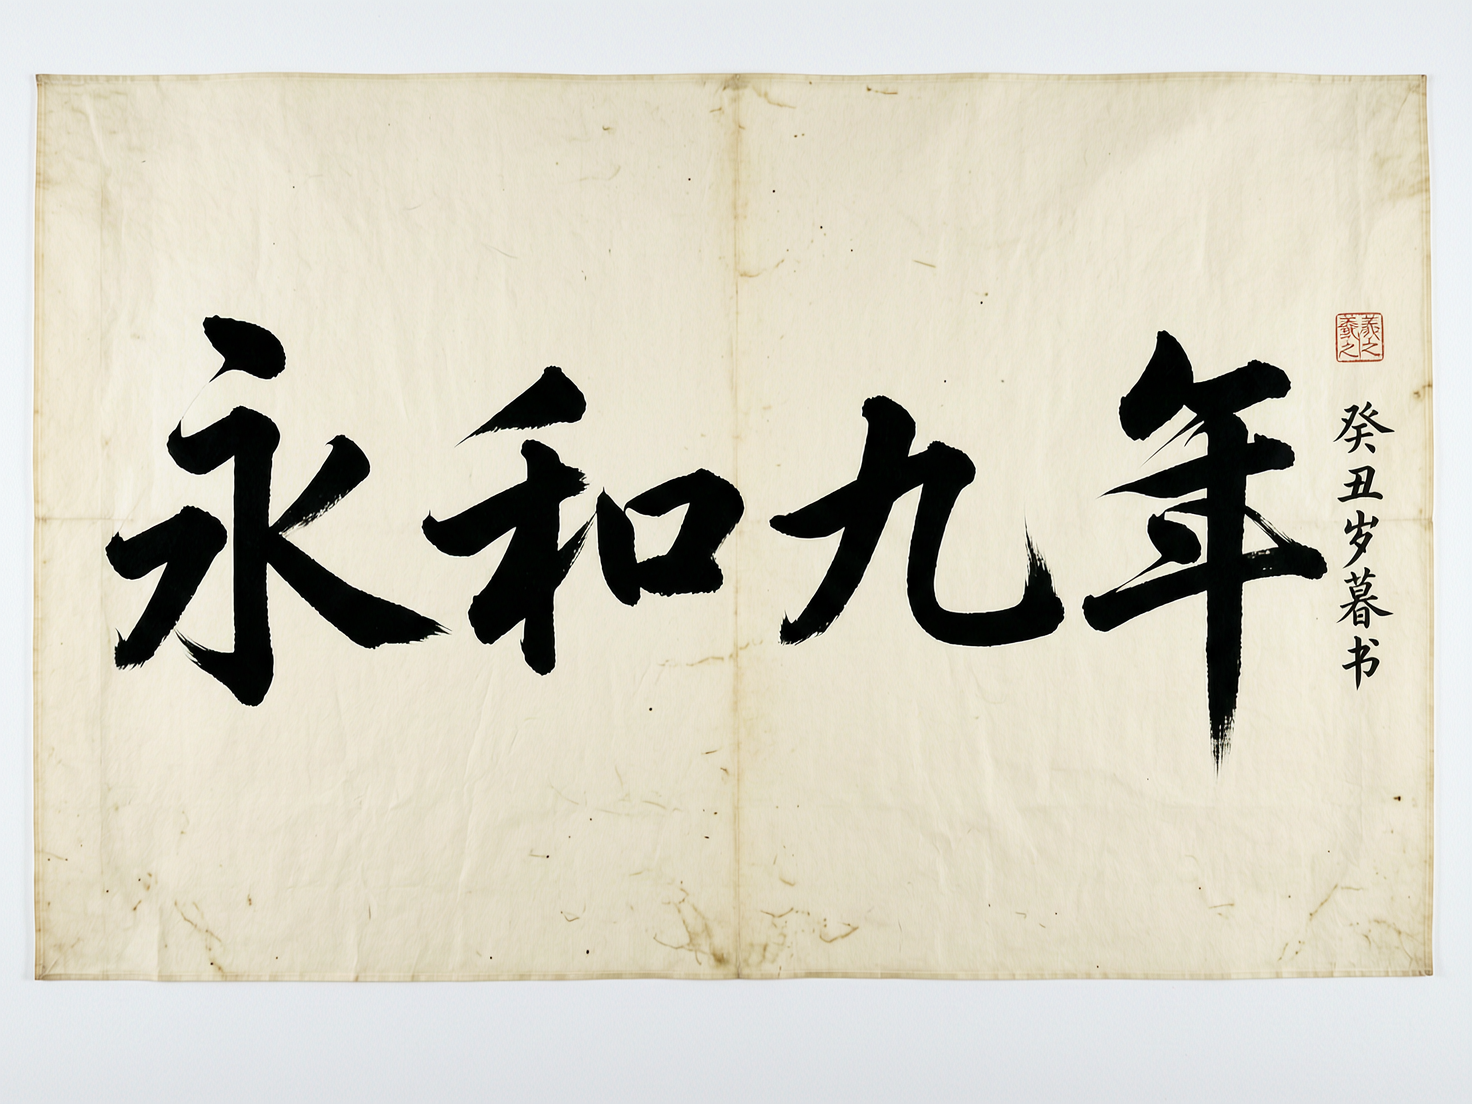 永和九年
羲之
癸丑岁暮书